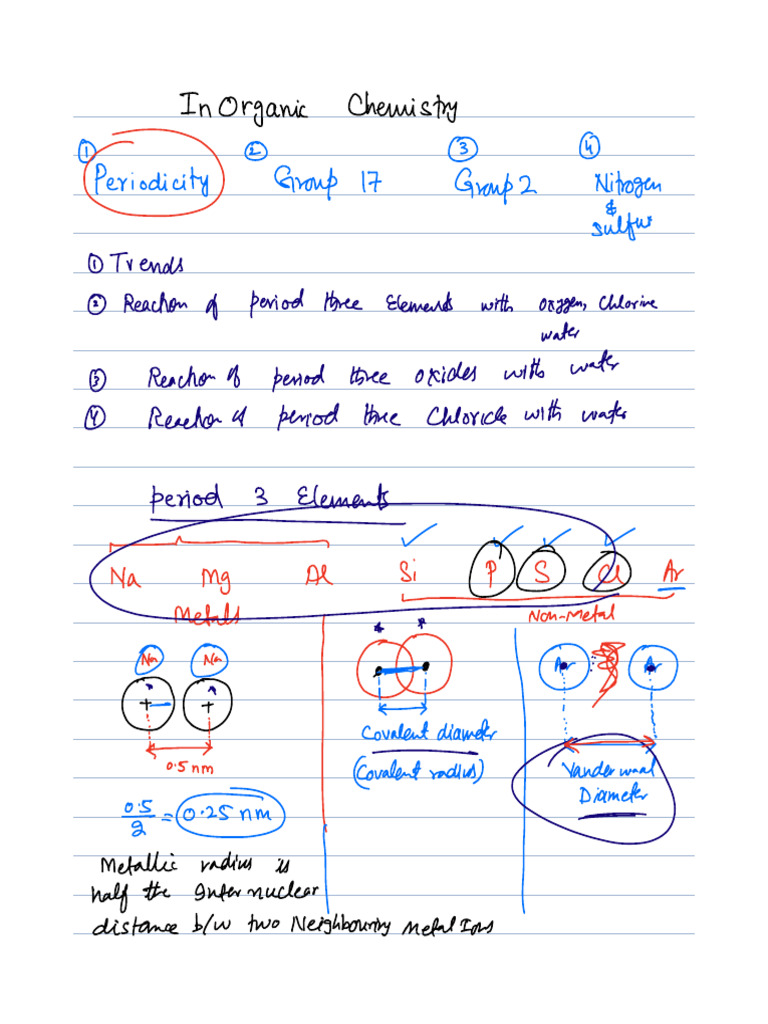 InOrganic Chemistry
① ② ③ ④
Periodicity Group 17 Group 2 Nitrogen
&
Sulfur
① Trends
② Reaction of period three Elements with oxygen, Chlorine
water
③ Reaction of period three oxides with water
④ Reaction of period three Chloride with water
period 3 Elements
Na Mg Al Si P S Cl Ar
Metals Non-Metal
Na Na
+ +
Ar Ar
0.5 nm
Covalent diameter
(Covalent radius)
Vanderwaal
Diameter
0.5/2 = 0.25 nm
Metallic radius is
half the Internuclear
distance b/w two Neighbouring Metal Ions